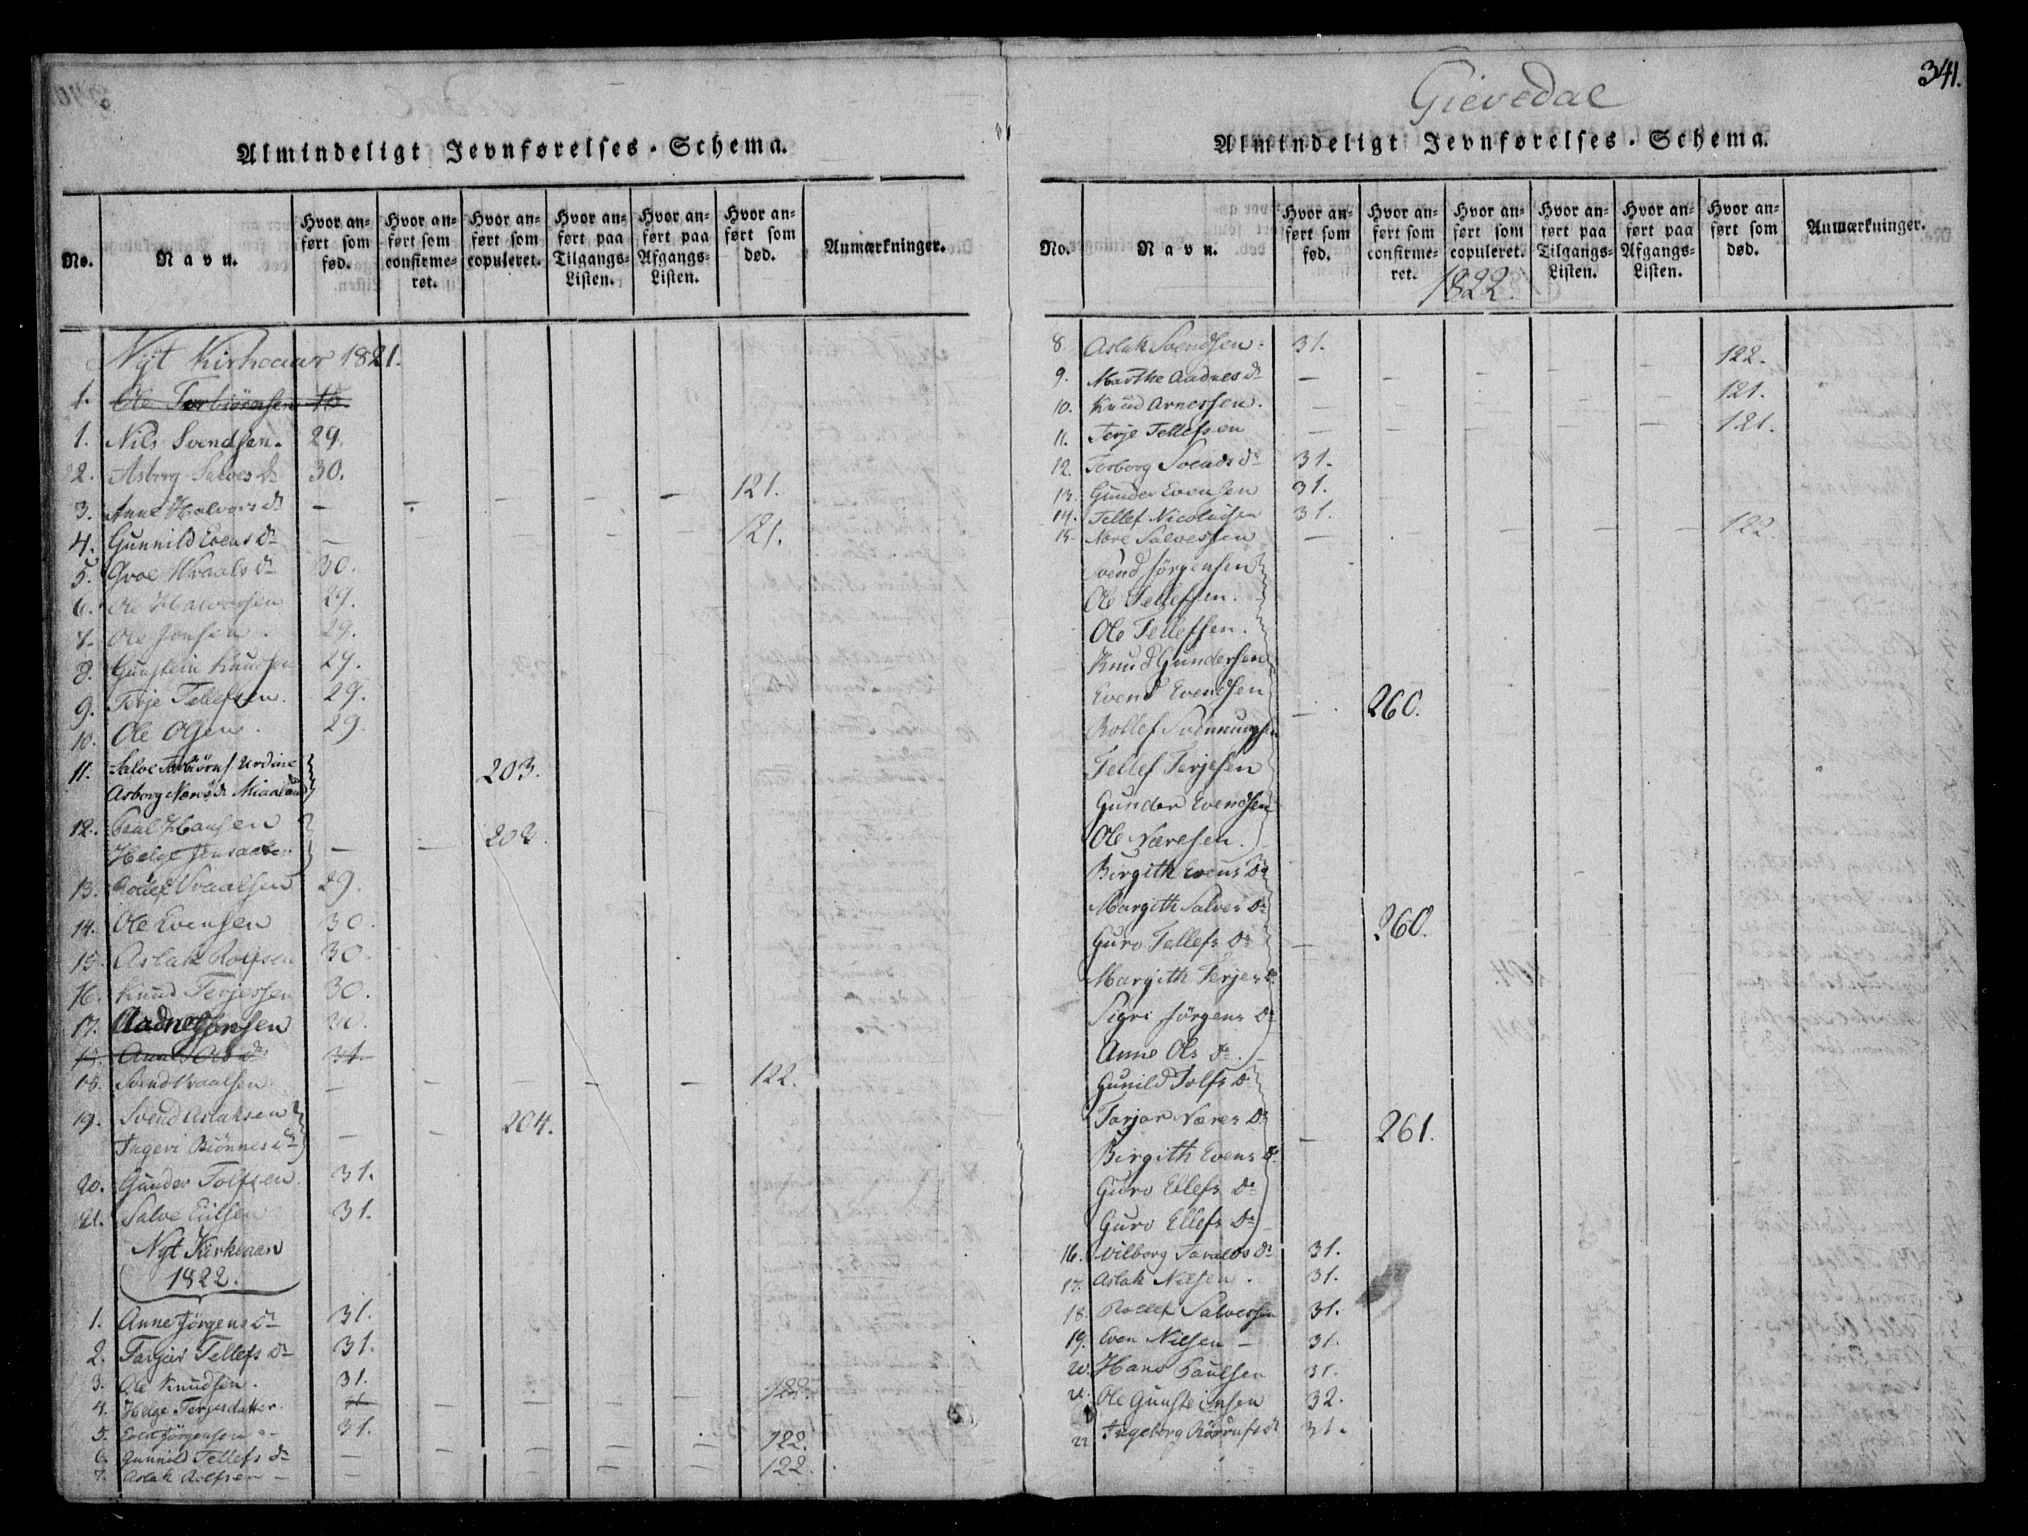 Almindeligt Jevnførelses-Schema.
No. Navn. Hvor anført som fød. Hvor anført som confirmeret. Hvor anført som copuleret. Hvor anført paa Tilgangs-Listen. Hvor anført paa Afgangs-Listen. Hvor anført som død. Anmærkninger.
Nyt Kirkeaar 1821.
1. Ole Torbiörnsen
1. Nils Svendsen. 29.
2. Asborg Salves dr 30.
3. Anne Halvors dr - - - - - 121.
4. Gunnild Evens Dr - 121.
5. Groe Wraals dr 30.
6. Ole Halvorsen 29.
7. Ole Jonsen. 29.
8. Gunstein Knudsen 29.
9. Terje Tellefsen. 29.
10. Ole Olsen. 29.
11. Salve Torbiörns Urdine
Asborg Næres dr Miaaland 203.
12. Paul Hansen
Helge - - 203.
13. Rollef Vraalsen 29.
14. Ole Evensen 30.
15. Aslak Rolfsen 30.
16. Knud Terjessen 30.
17. Aadne Jonsen 30.
18. Anne Ols dr 31.
18. Svend Vraalsen. - - - - 122.
19. Svend Aslaksen
Ingeri Biönnes dr - - 204.
20. Gunder Tolfsen. 31.
21. Salve Eiilsen 31.
Nyt Kirkeaar
1822.
1. Anne Jörgens Dr 31.
2. Tarjer Tellefs Dr 31.
3. Ole Knudsen. 31.
4. Helge Terjesdatter. - - - - 122.
5. Even Jörgensen 31.
6. Gunnild Tellefs Dr - - - - - 122.
7. Aslak Rolfsen - - - - - 122.
Gievedal
341.
Almindeligt Jevnførelses-Schema.
No. Navn. Hvor anført som fød. Hvor anført som confirmeret. Hvor anført som copuleret. Hvor anført paa Tilgangs-Listen. Hvor anført paa Afgangs-Listen. Hvor anført som død. Anmærkninger.
1822.
8. Aslak Svendsen. 31.
9. Marthe Aadnes dr - - - - - 122.
10. Knud Arnessen. - - - - - 121.
11. Terje Tellefsen - - - - - 121.
12. Torborg Svends dr 31.
13. Gunder Evensen 31.
14. Tellef Nicolaisen 31.
15. Nære Salvessen - - - - - 122.
Svend Jörgensen
Ole Tellefsen.
Ole Tellefsen.
Knud Gundersen
Evend Evendsen
Rollef Svennungsen - 260.
Tellef Terjesen
Gunder Evendsen
Ole Næresen.
Birgith Evens Dr
Margith Salves Dr
Guro Tellefs Dr - 260.
Margith Terjes Dr
Sigri Jörgens Dr
Anne Ols Dr.
Gunild Tolfs Dr
Tarjer Næres Dr
Birgith Evens Dr - 261.
Guro Ellefs Dr
Guro Ellefs Dr
16. Wilborg Taralds dr 31.
17. Aslak Nilsen. 31.
18. Rollef Salvessen 31.
19. Even Nilsen - 31.
20. Hans Paulsen 31.
21. Ole Gunsteinsen 32.
22 Ingeborg dr 31.